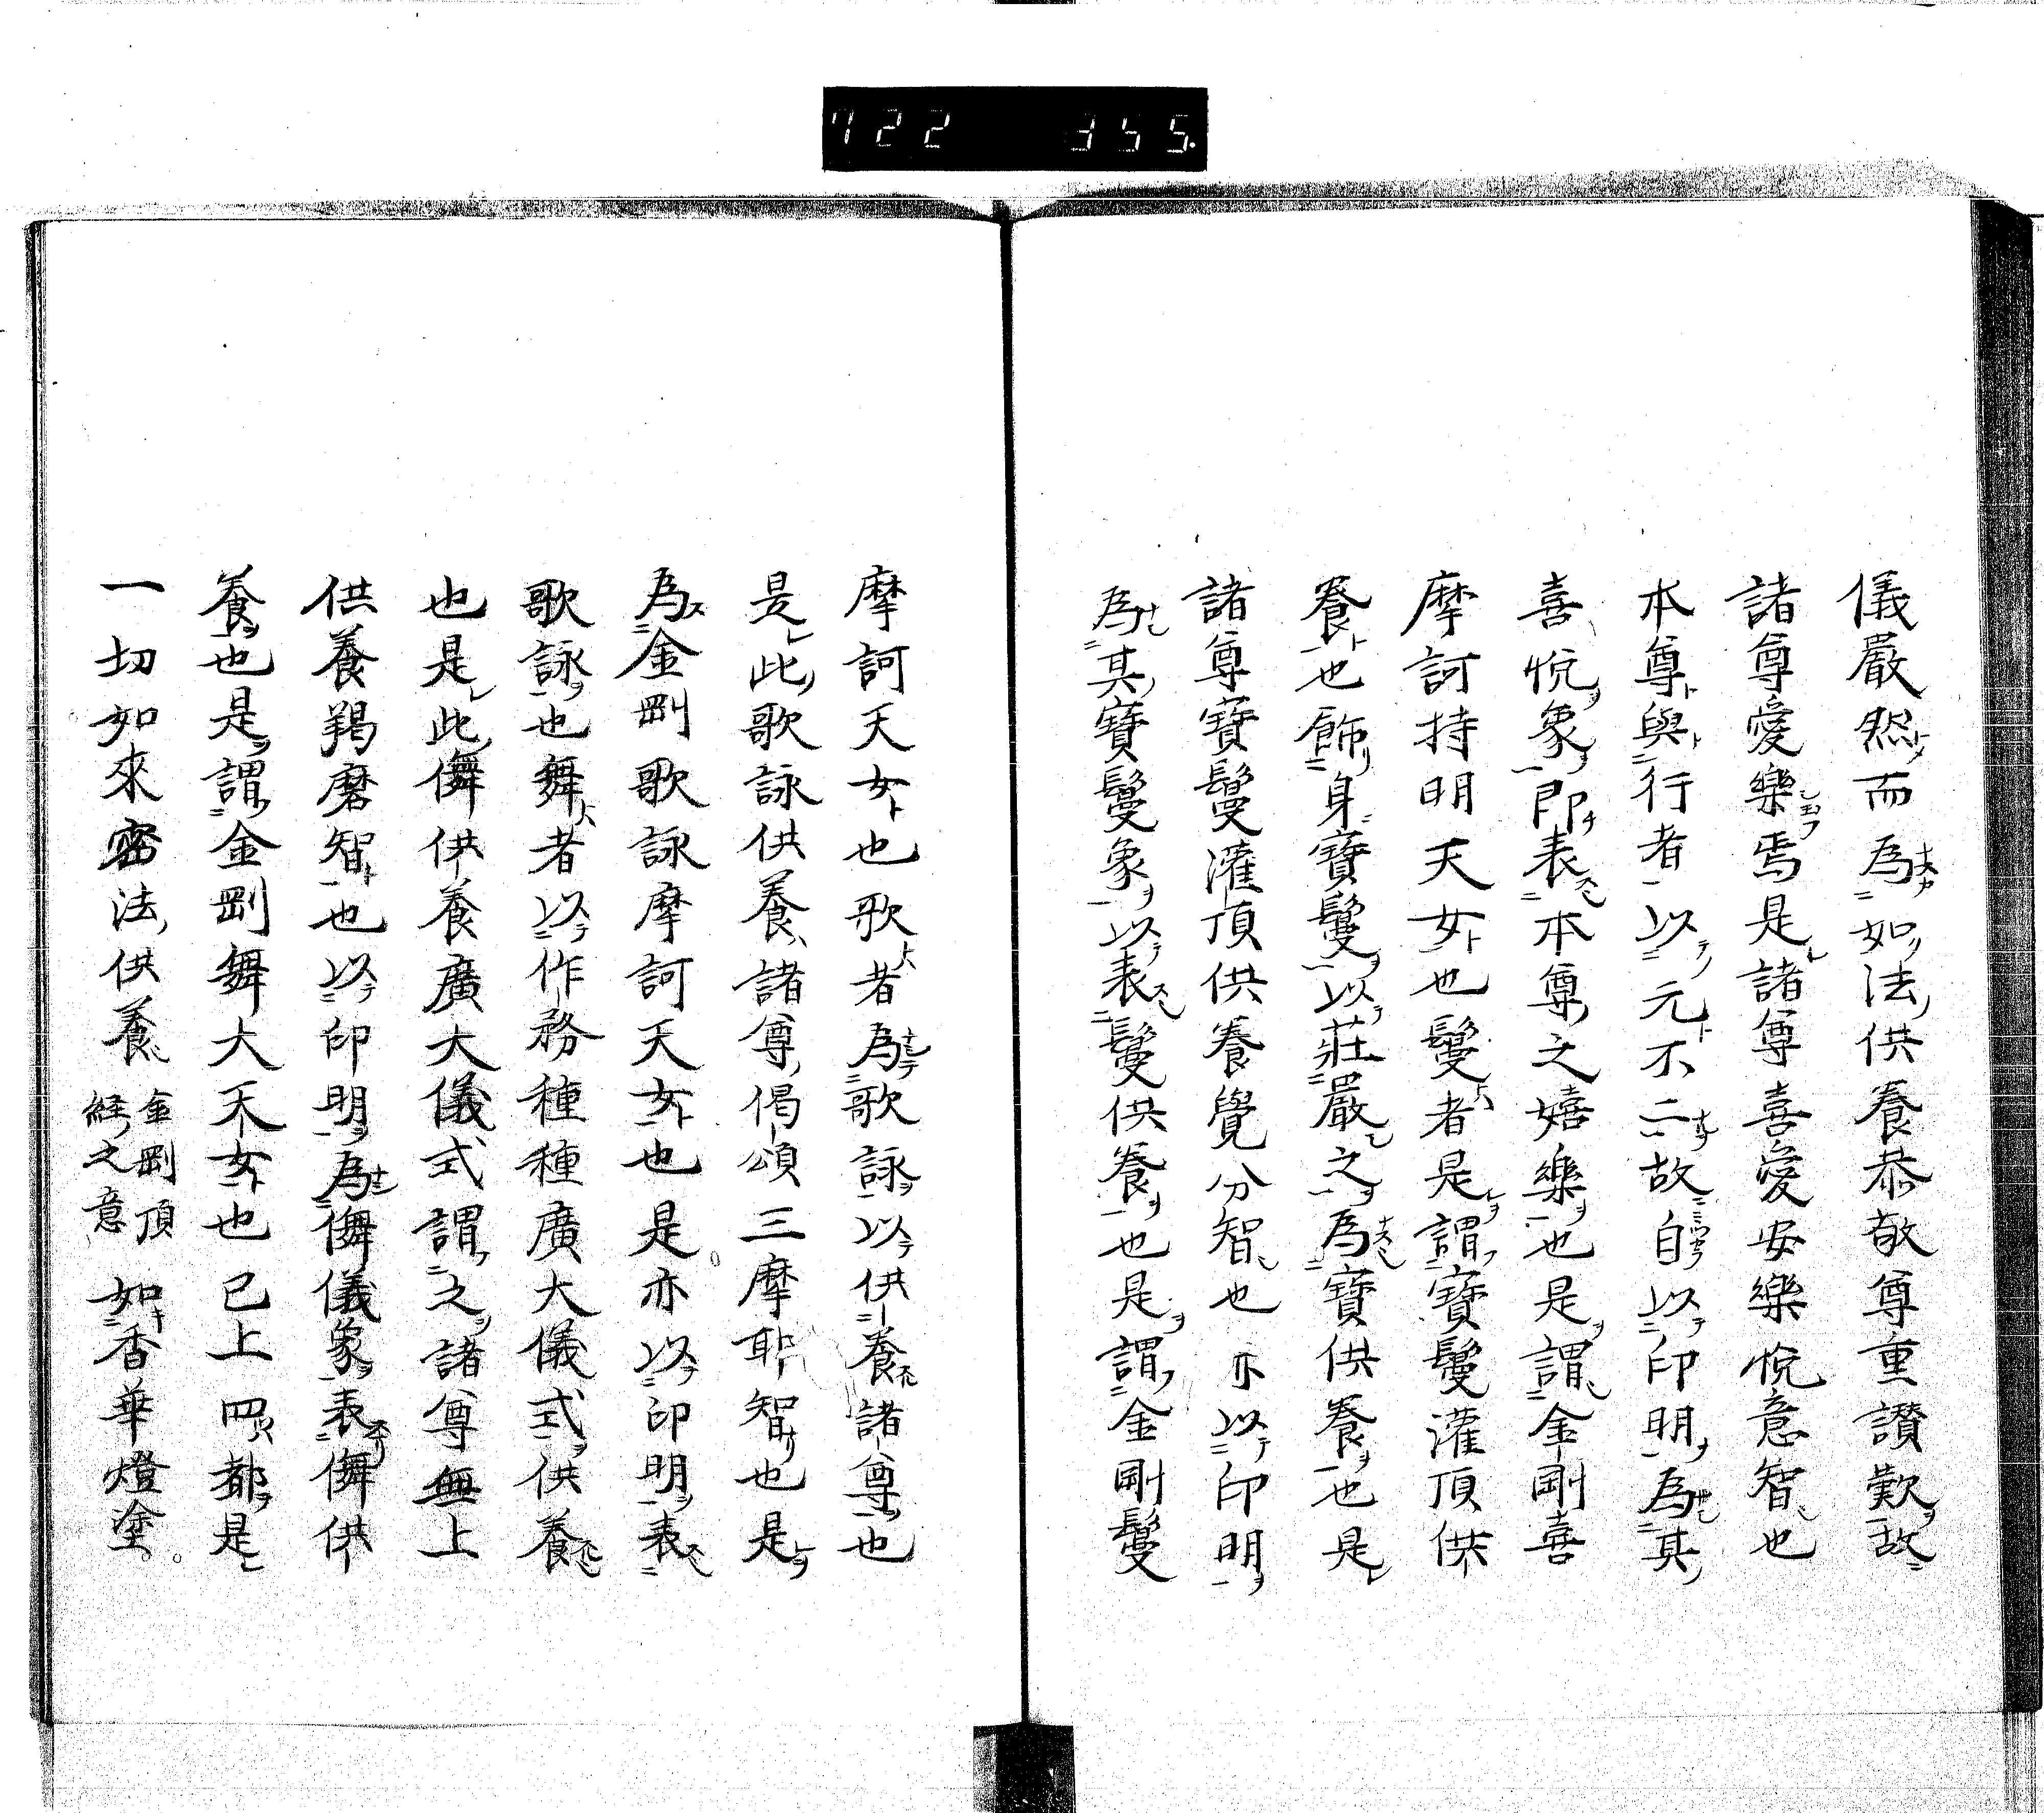 722 355.
儀嚴然而為如法供養恭敬尊重讃歎故
諸尊愛樂焉是諸尊喜愛安樂悅意智也
本尊與行者以元不二故自以印明為其
喜悅象即表本尊之嬉樂也是謂金剛喜
摩訶持明天女也鬘者是謂寶鬘灌頂供
養也飾身寶鬘以莊嚴之為寶供養也是
諸尊寶鬘灌頂供養覺分智也亦以印明
為其寶鬘象以表鬘供養也是謂金剛鬘
摩訶天女也歌者為歌詠以供養諸尊也
是此歌詠供養諸尊偈頌三摩耶智也是
為金剛歌詠摩訶天女也是亦以印明表
歌詠也舞者以作務種種廣大儀式供養
也是此儛供養廣大儀式謂之諸尊無上
供養羯磨智也以印明為儛儀象表儛供
養也是謂金剛舞大天女也已上四都是
一切如來密法供養金剛頂經之意如香華燈塗